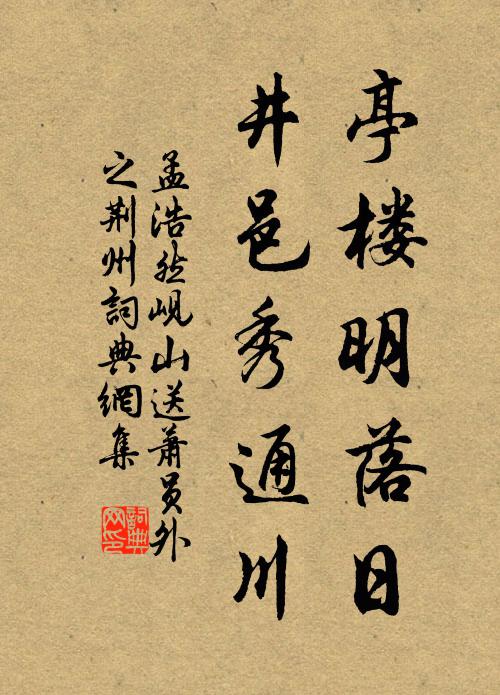 亭楼明落日
井邑秀通川
孟浩然峴山送萧员外
之荆州詞典網集
詞典
网印